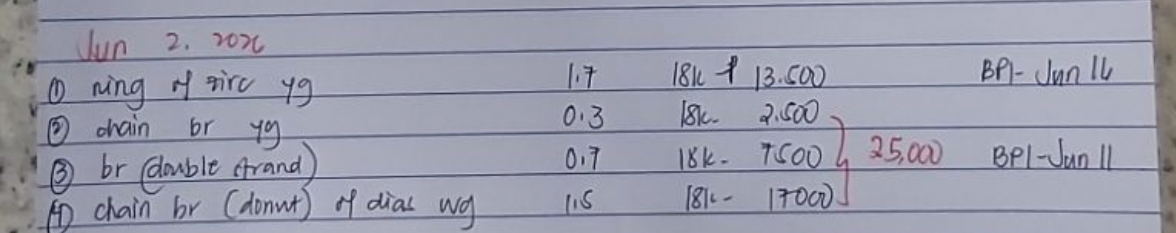 Jun 2. 2026
① ring w/ zirc yg 1.7 18k - 13.500 BPI- Jun 16
② chain br yg 0.3 18k- 2.500
③ br (double strand) 0.7 18k- 7500 25,000 BPI-Jun 11
④ chain br (donut) w/ dias wg 1.5 18k- 17000